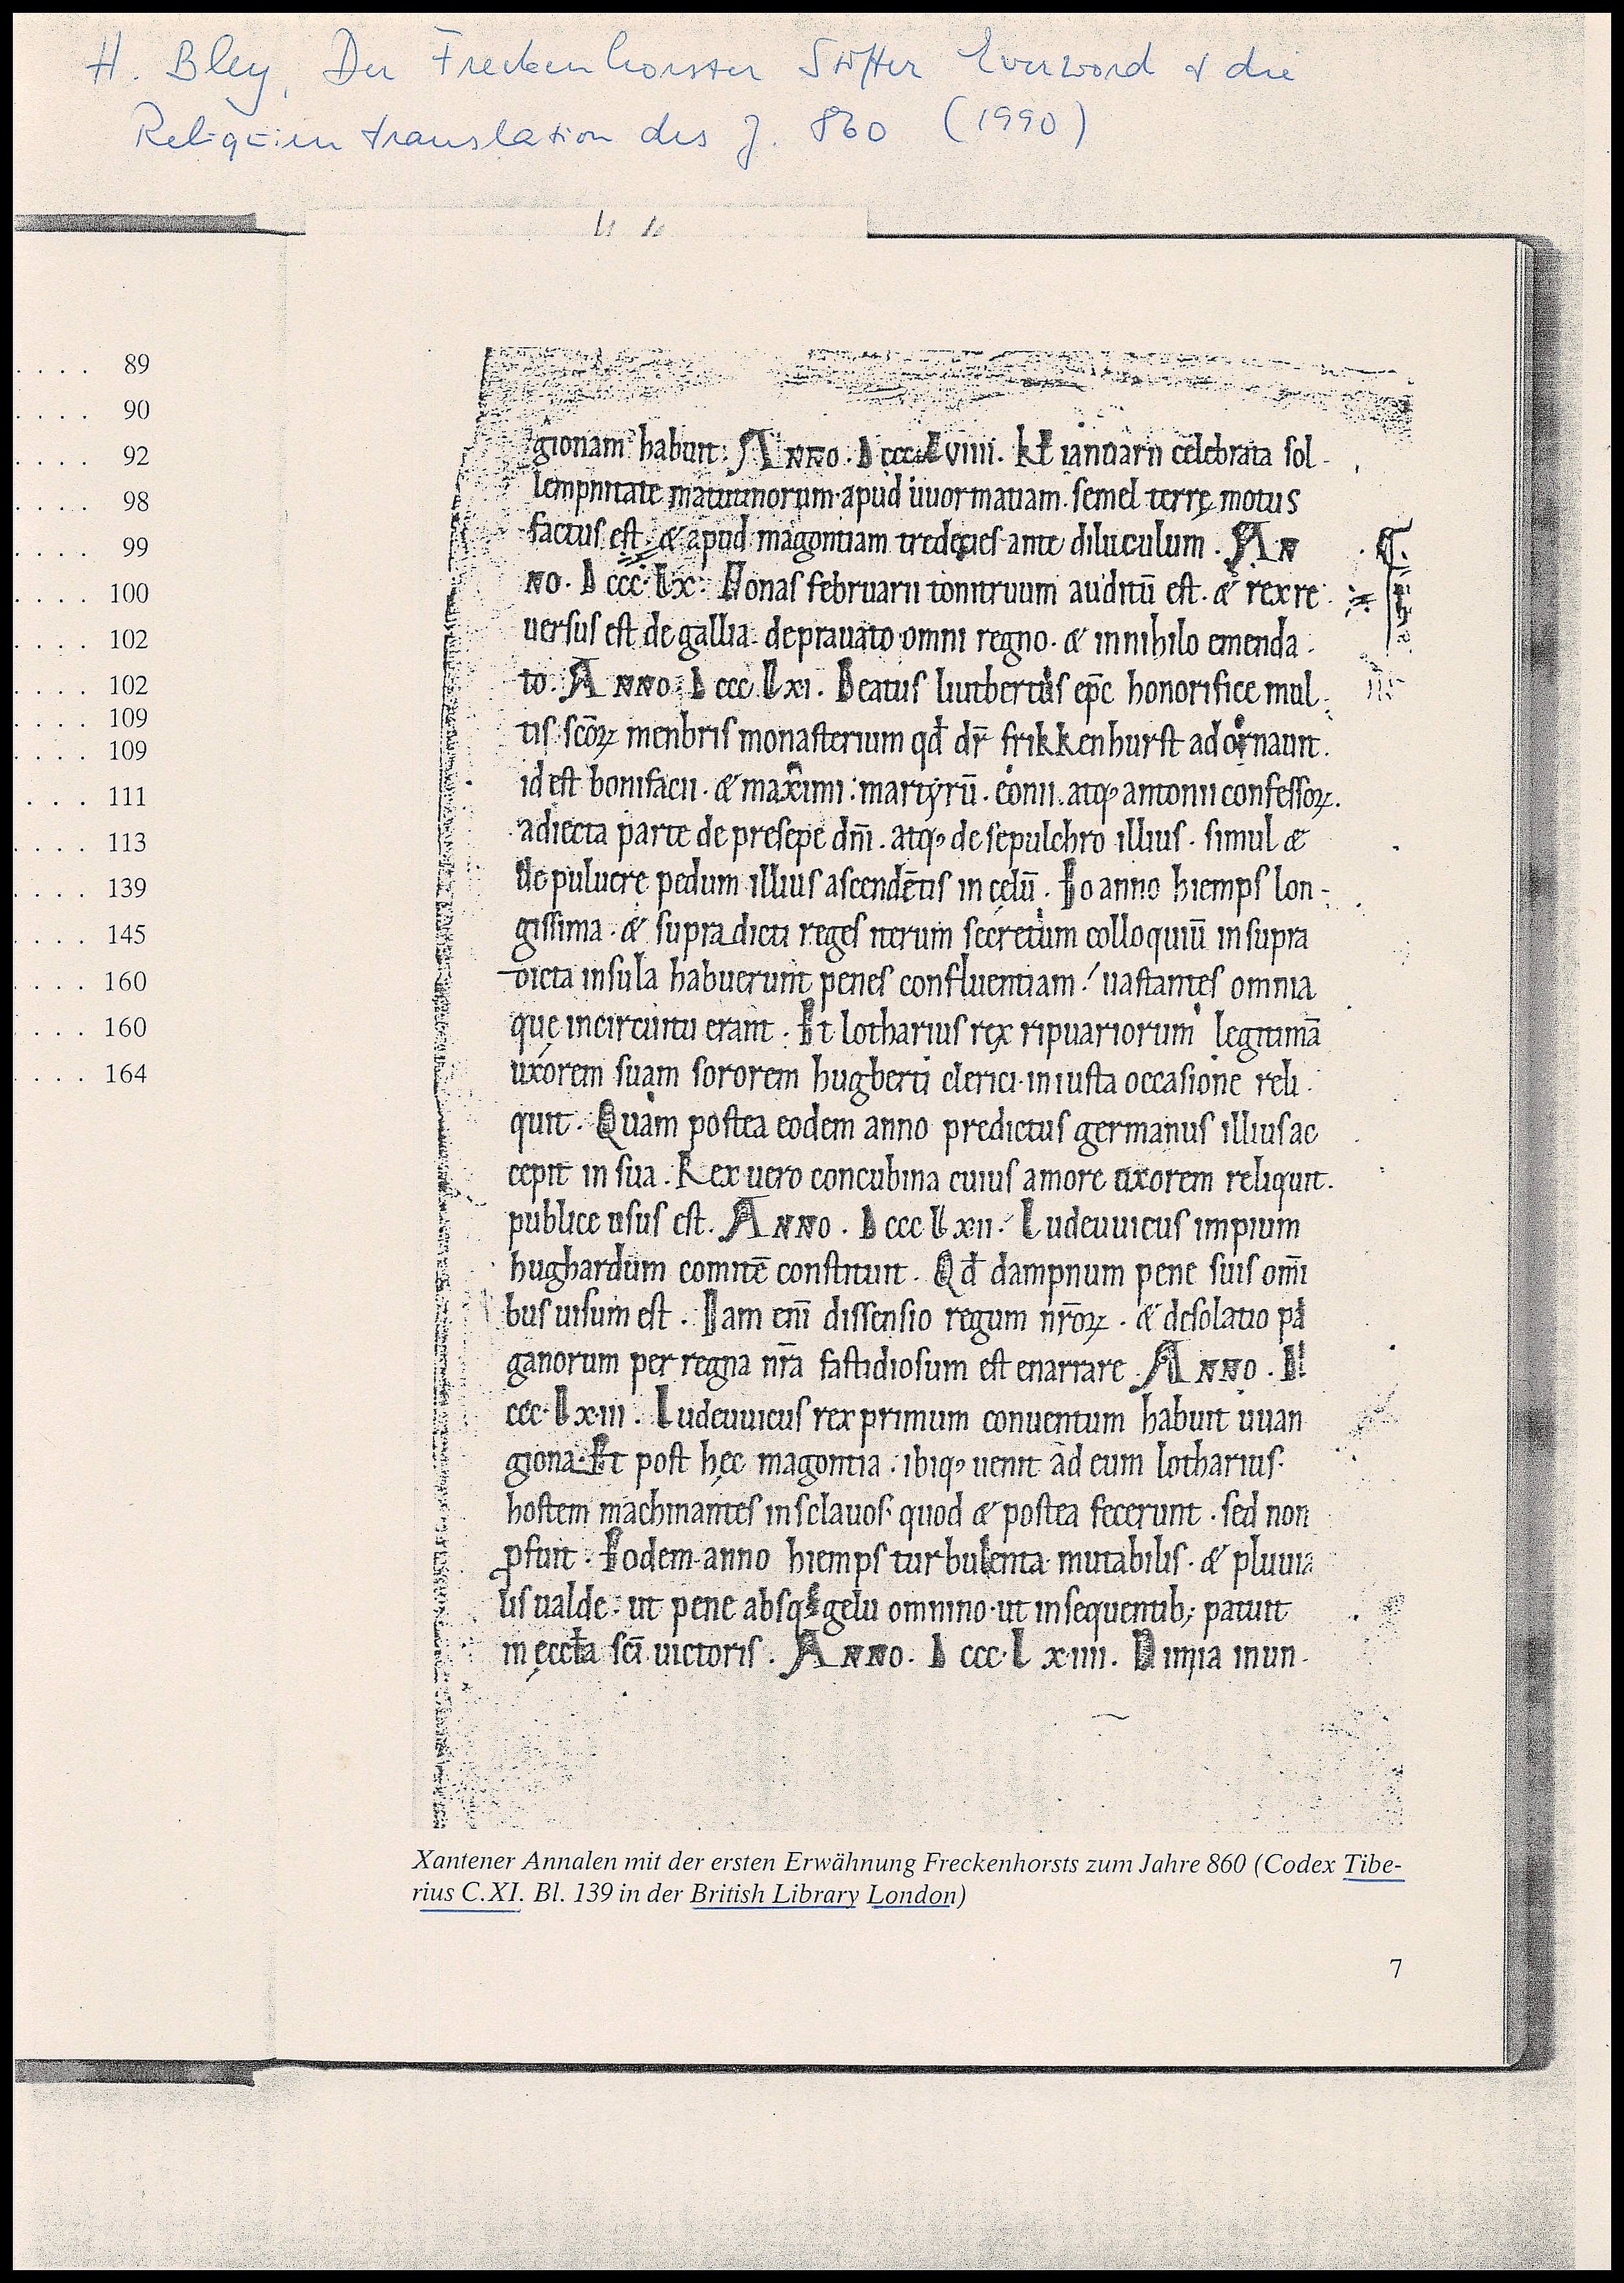 H. Bley, Der Freckenhorster Stifter Everword & die
Reliquientranslation des J. 860 (1990)
. . . . 89
. . . . 90
. . . . 92
. . . . 98
. . . . 99
. . . . 100
. . . . 102
. . . . 102
. . . . 109
. . . . 109
. . . 111
. . . . 113
. . . . 139
. . . . 145
. . . . 160
. . . . 160
. . . . 164
gionam habuit. Anno. D ccc L viiii. kł ianuarii celebrata sol-
lempnitate matutinorum. apud uuormatiam. semel terrę motus
factus est. & apud magontiam tredecies ante diluculum. An
no. D ccc. Lx. Nonas februarii tonitruum auditū est. & rex re
uersus est de gallia. deprauato omni regno. & in nihilo emenda.
to. Anno. D ccc Lxi. Beatus liutbertus ep̄c honorifice mul.
tis scōꝝ menbris monasterium qđ dr̄ frikkenhurst adornauit.
id est bonifacii. & maximi. martyrū. eonii. atqꝫ antonii confessoꝝ.
adiecta parte de presepe dn̄i. atqꝫ de sepulchro illius. simul &
de puluere pedum illius ascendētis in cęlū. Eo anno hiemps lon-
gissima. & supradicti reges iterum secretum colloquiū in supra
dicta insula habuerunt penes confluentiam. uastantes omnia
quę in circuitu erant. Et lotharius rex ripuariorum legitimā
uxorem suam sororem hugberti clerici. iniusta occasione reli.
quit. Quam postea eodem anno predictus germanus illius ac
cepit in sua. Rex uero concubina cuius amore uxorem reliquit.
publice usus est. Anno. D ccc Lxii. Ludeuuicus impium
hughardum comitē constituit. Qđ dampnum pene suis om̄i
bus uisum est. Nam eni dissensio regum nr̄oꝝ. & desolatio pa
ganorum per regna nr̄a fastidiosum est enarrare. Anno. D
ccc. Lxiii. Ludeuuicus rex primum conuentum habuit uuan
giona. Et post hęc magontia. ibiqꝫ uenit ad eum lotharius.
hostem machinantes in sclauos. quod & postea fecerunt. sed non
ꝓfuit. Eodem anno hiemps turbulenta mutabilis. & pluuia
lis ualde. ut pene absqꝫ gelu omnino. ut in sequentibꝫ patuit
in ęccła sc̄i uictoris. Anno. D ccc. L xiiii. Nimia inun-
Xantener Annalen mit der ersten Erwähnung Freckenhorsts zum Jahre 860 (Codex Tibe-
rius C.XI. Bl. 139 in der British Library London)
7